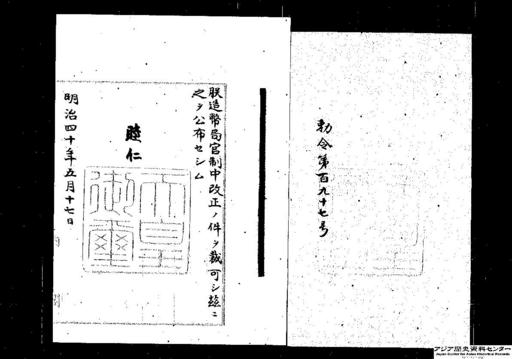 勅令第百九十七号
朕造幣局官制中改正ノ件ヲ裁可シ玆ニ
之ヲ公布セシム
睦仁
天皇御璽
明治四十年五月十七日
アジア歴史資料センター
Japan Center for Asian Historical Records